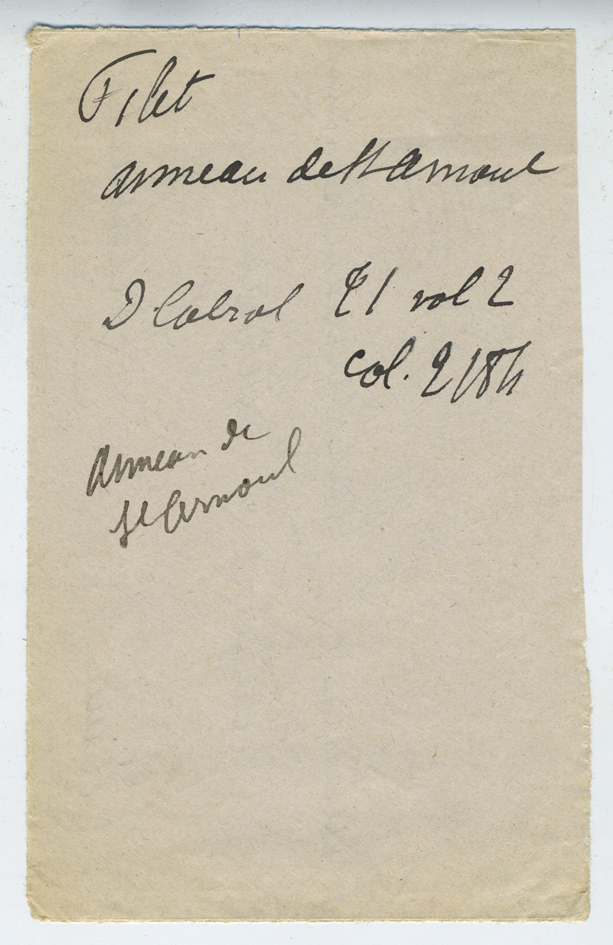 Filet
anneau de St Arnoul
D Cabrol T1 vol 2
col. 2184
anneau de
St Arnoul